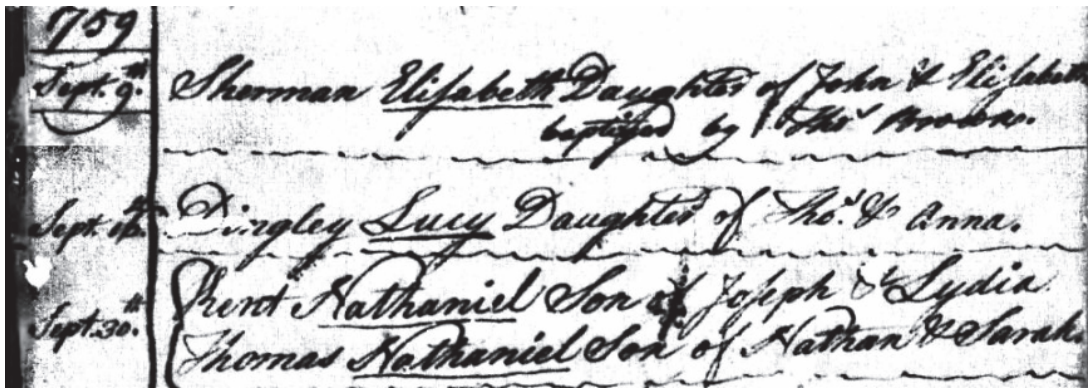 759
Sept. 9.th Sherman Elisabeth Daughter of John & Elisabeth
baptized by Thos Brown.
Sept. 16.th Dingley Lucy Daughter of Thos. & Anna.
Kent Nathaniel Son of Joseph & Lydia
Sept. 30.th Thomas Nathaniel Son of Nathan & Sarah.